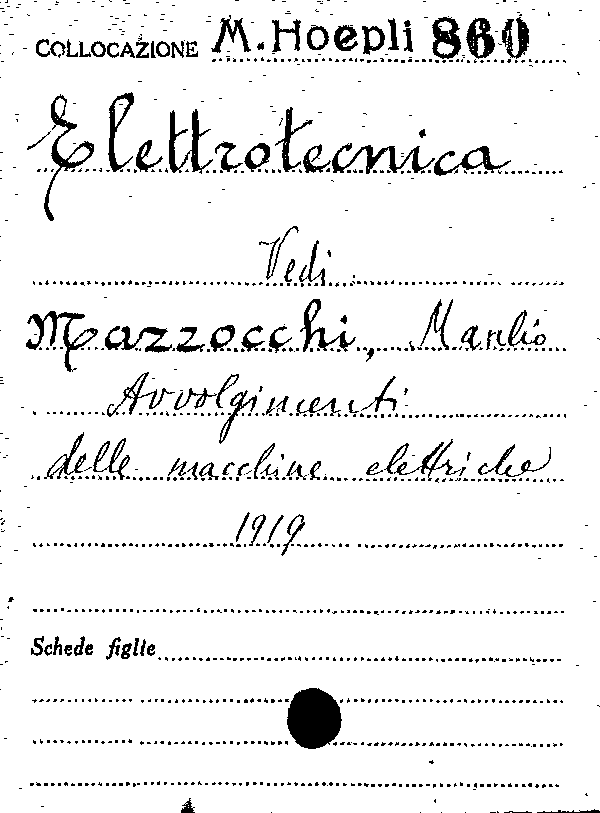 COLLOCAZIONE M. Hoepli 860
Elettrotecnica
Vedi
Mazzocchi, Manlio
Avvolgimenti
delle macchine elettriche
1919
Schede figlie